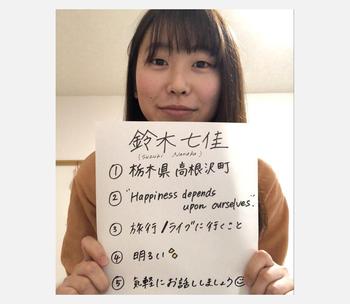 鈴木七佳
(Suzuki Nanaka)
① 栃木県 高根沢町
② "Happiness depends
upon ourselves."
③ 旅行/ライブに行くこと
④ 明るい
⑤ 気軽にお話ししましょう☺